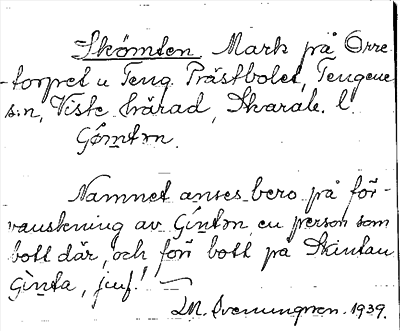 Skömten Mark på Orre
-torpet u Teng Prästbolet, Tengene
s:n, Viste härad, Skarab. l.
Gömtn.
Namnet anses bero på för-
vanskning av Gintn, en person som
bott där, och förr bott på Skintan
Ginta, jmf! —
M. Svenungsson. 1939.